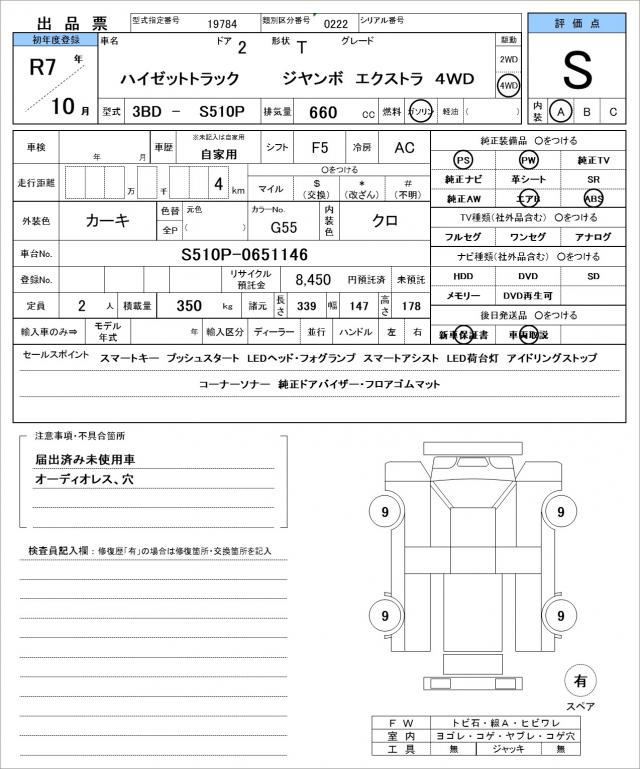 出品票 型式指定番号 19784 類別区分番号 0222 シリアル番号
評価点
初年度登録 車名 ドア 2 形状 T グレード 駆動
R7 年 ハイゼットトラック ジヤンボ エクストラ 4WD 2WD
4WD
S
10 月 型式 3BD － S510P 排気量 660 cc 燃料 ガソリン 軽油 ( ) 内装 A B C
車検 年 月 車歴 ※未記入は自家用 自家用 シフト F5 冷房 AC
純正装備品 〇をつける
走行距離 万 千 4 km 〇をつける
マイル $ (交換) * (改ざん) # (不明)
PS PW 純正TV
純正ナビ 革シート SR
純正AW エアB ABS
外装色 カーキ 色替 全P 元色 ( ) カラーNo. G55 内装色 クロ
TV種類(社外品含む) 〇をつける
フルセグ ワンセグ アナログ
車台No. S510P-0651146
ナビ種類(社外品含む) 〇をつける
登録No. リサイクル預託金 8,450 円預託済 未預託
HDD DVD SD
メモリー DVD再生可
定員 2 人 積載量 350 kg 諸元 長さ 339 幅 147 高さ 178
後日発送品 〇をつける
輸入車のみ⇒ モデル年式 年 輸入区分 ディーラー 並行 ハンドル 左 右
新車保証書 車両取説
セールスポイント スマートキー プッシュスタート LEDヘッド・フォグランプ スマートアシスト LED荷台灯 アイドリングストップ
コーナーソナー 純正ドアバイザー・フロアゴムマット
注意事項・不具合箇所
届出済み未使用車
オーディオレス、穴
検査員記入欄：修復歴「有」の場合は修復箇所・交換箇所を記入
9 9
9 9
有
スペア
FW トビ石・線A・ヒビワレ
室内 ヨゴレ・コゲ・ヤブレ・コゲ穴
工具 無 ジャッキ 無